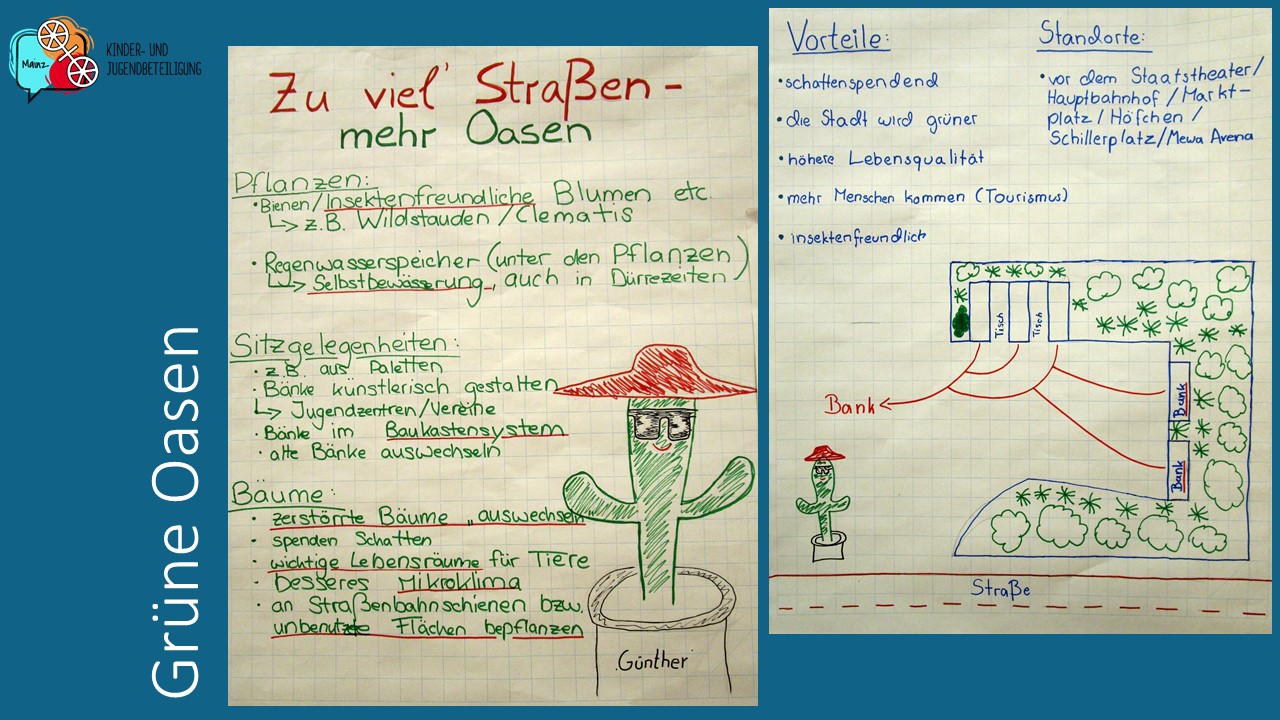 Mainz
KINDER- UND
JUGENDBETEILIGUNG
Grüne Oasen
Zu viel' Straßen -
mehr Oasen
Pflanzen:
• Bienen/Insektenfreundliche Blumen etc.
↳ z.B. Wildstauden / Clematis
• Regenwasserspeicher (unter den Pflanzen)
↳ Selbstbewässerung, auch in Dürrezeiten
Sitzgelegenheiten:
• z.B. aus Paletten
• Bänke künstlerisch gestalten
↳ Jugendzentren/Vereine
• Bänke im Baukastensystem
• alte Bänke auswechseln
Bäume:
• zerstörrte Bäume „auswechseln“
• spenden Schatten
• wichtige Lebensräume für Tiere
• besseres Mikroklima
• an Straßenbahnschienen bzw.
unbenutzte Flächen bepflanzen
Günther
Vorteile:
• schattenspendend
• die Stadt wird grüner
• höhere Lebensqualität
• mehr Menschen kommen (Tourismus)
• insektenfreundlich
Standorte:
• vor dem Staatstheater/
Hauptbahnhof / Markt-
platz / Höfchen /
Schillerplatz/Mewa Arena
Tisch
Tisch
Bank
Bank
Bank
Straße